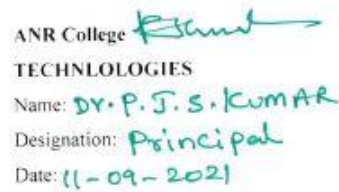 ANR College
TECHNLOLOGIES
Name: Dr. P. J. S. KUMAR
Designation: Principal
Date: 11-09-2021